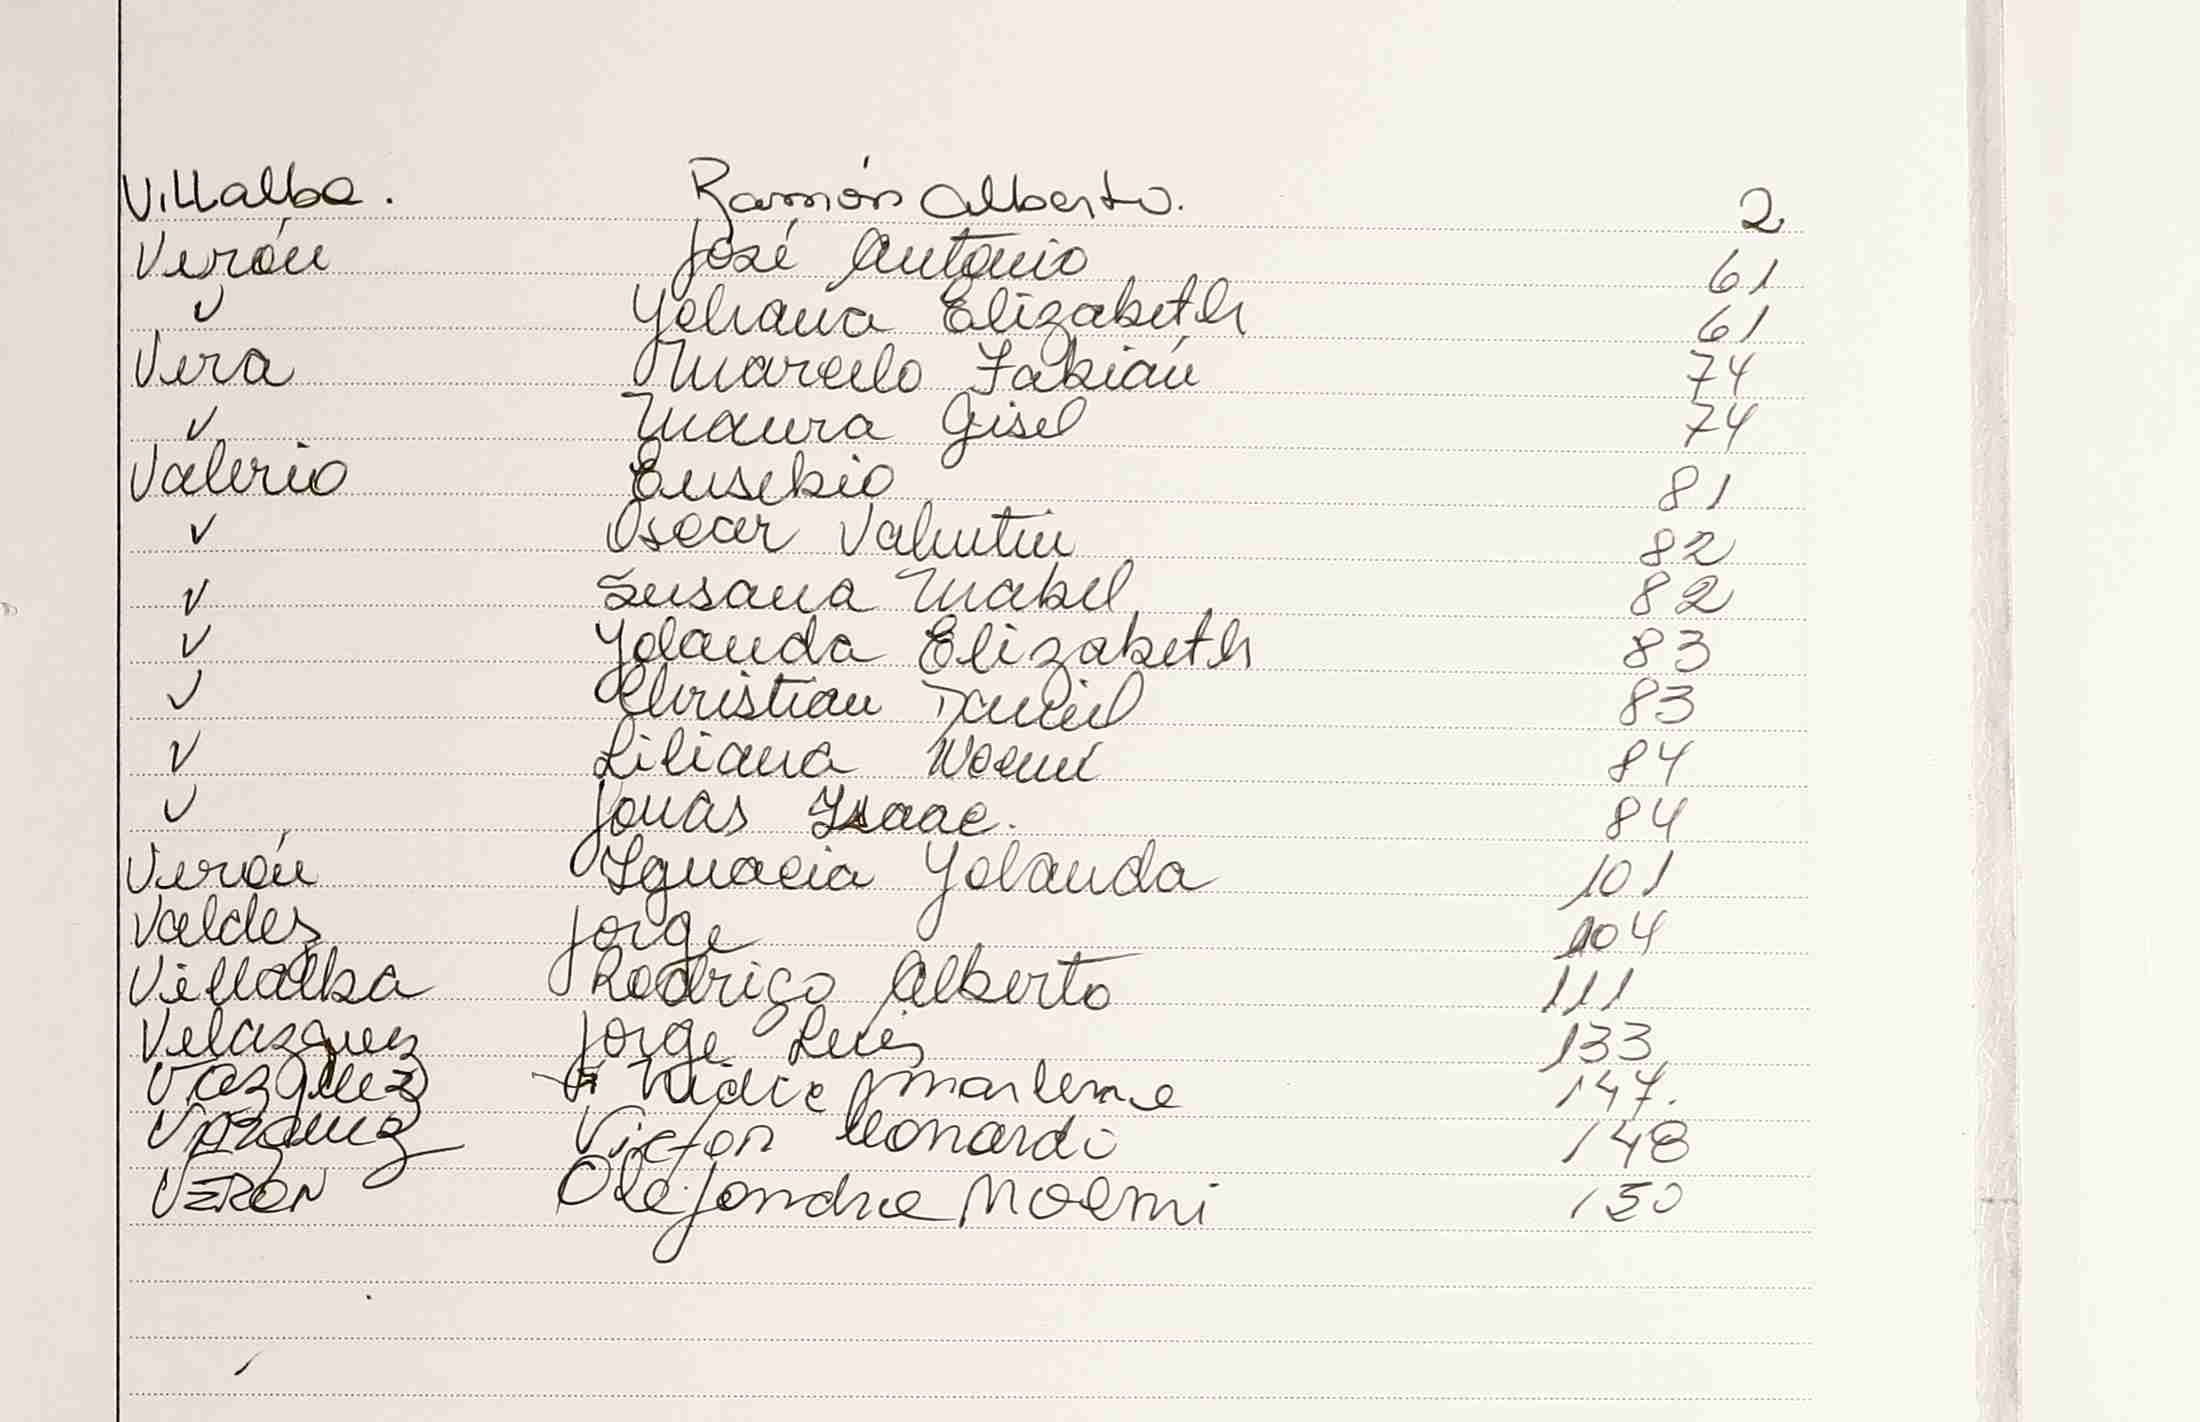 Villalba. Ramón Alberto. 2
Verón José Antonio 61
v Yohana Elizabeth 61
Vera Marcelo Fabián 74
v Maura Gisel 74
Valerio Eusebio 81
v Oscar Valentin 82
v Susana Mabel 82
v Yolanda Elizabeth 83
v Christian Daniel 83
v Liliana Noemí 84
v Jonas Isaac. 84
Verón Ignacia Yolanda 101
Valdez Jorge 104
Villalba Rodrigo Alberto 111
Velazquez Jorge Luis 133
Vazquez Nidia Marlene 147.
Vazquez Victor Leonardo 148
VERON Alejandra Noemi 150